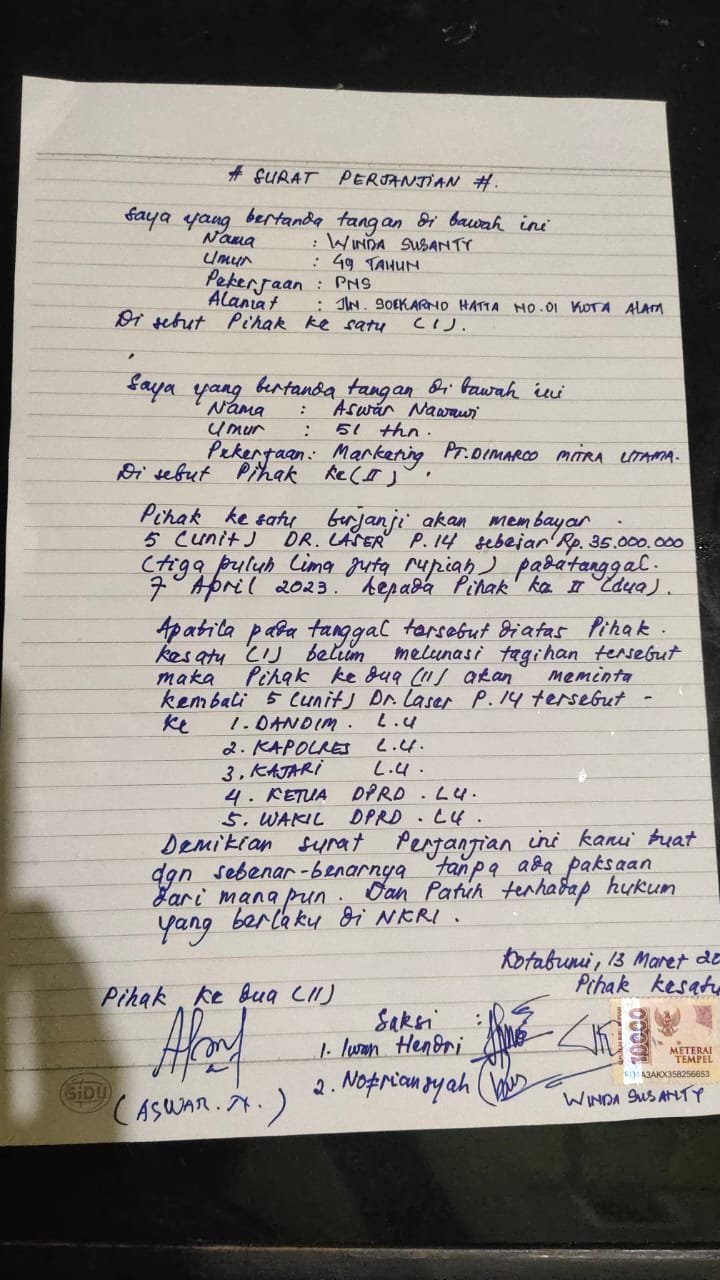 # SURAT PERJANJIAN #.
Saya yang bertanda tangan di bawah ini
Nama : WINDA SUSANTY
Umur : 49 TAHUN
Pekerjaan : PNS
Alamat : JLN. SOEKARNO HATTA NO.01 KOTA ALAM
Di sebut Pihak ke satu (I).
Saya yang bertanda tangan di bawah ini
Nama : Aswar Nawawi
Umur : 51 thn.
Pekerjaan : Marketing PT. DIMARCO MITRA UTAMA.
Di sebut Pihak ke (II)
Pihak ke satu berjanji akan membayar
5 (unit) DR. LASER P.14 sebesar Rp. 35.000.000
(tiga puluh lima juta rupiah) pada tanggal.
7 April 2023. kepada Pihak ke II (dua).
Apabila pada tanggal tersebut diatas Pihak.
kesatu (I) belum melunasi tagihan tersebut
maka Pihak ke dua (II) akan meminta
kembali 5 (unit) Dr. Laser P.14 tersebut -
ke 1. DANDIM. L.U
2. KAPOLRES L.U.
3. KAJARI L.U.
4. KETUA DPRD. L.U.
5. WAKIL DPRD. L.U.
Demikian surat Perjanjian ini kami buat
dgn sebenar-benarnya tanpa ada paksaan
dari manapun. Dan Patuh terhadap hukum
yang berlaku di NKRI.
Kotabumi, 13 Maret 20
Pihak ke dua (II)
Pihak kesatu
Saksi :
1. Iwan Hendri
2. Nofriansyah
10000
METERAI
TEMPEL
A3AKX358256653
SiDU
(ASWAR. N.)
WINDA SUSANTY